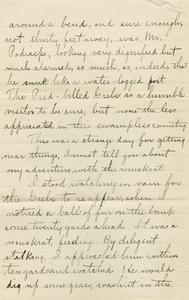 around a bend, and sure enough,
not thirty feet away, was Mr.
Podiceps, looking very dignified but
much alarmed, so much, so, indeed, that
he sunk like a water-logged post.
The Pied-billed Grebe is a humble
visitor to be sure, but none the less
appreciated in this swampless country.
This was a strange day for getting
near things, I must tell you about
my adventure with the muskrat.
I stood watching in vain for
the Grebe to reappear, when I
noticed a ball of fur on the bank
some twenty yards ahead. It was a
muskrat, feeding. By diligent
stalking I approached him within
ten yards and watched. He would
dig up some grass, wash it in the